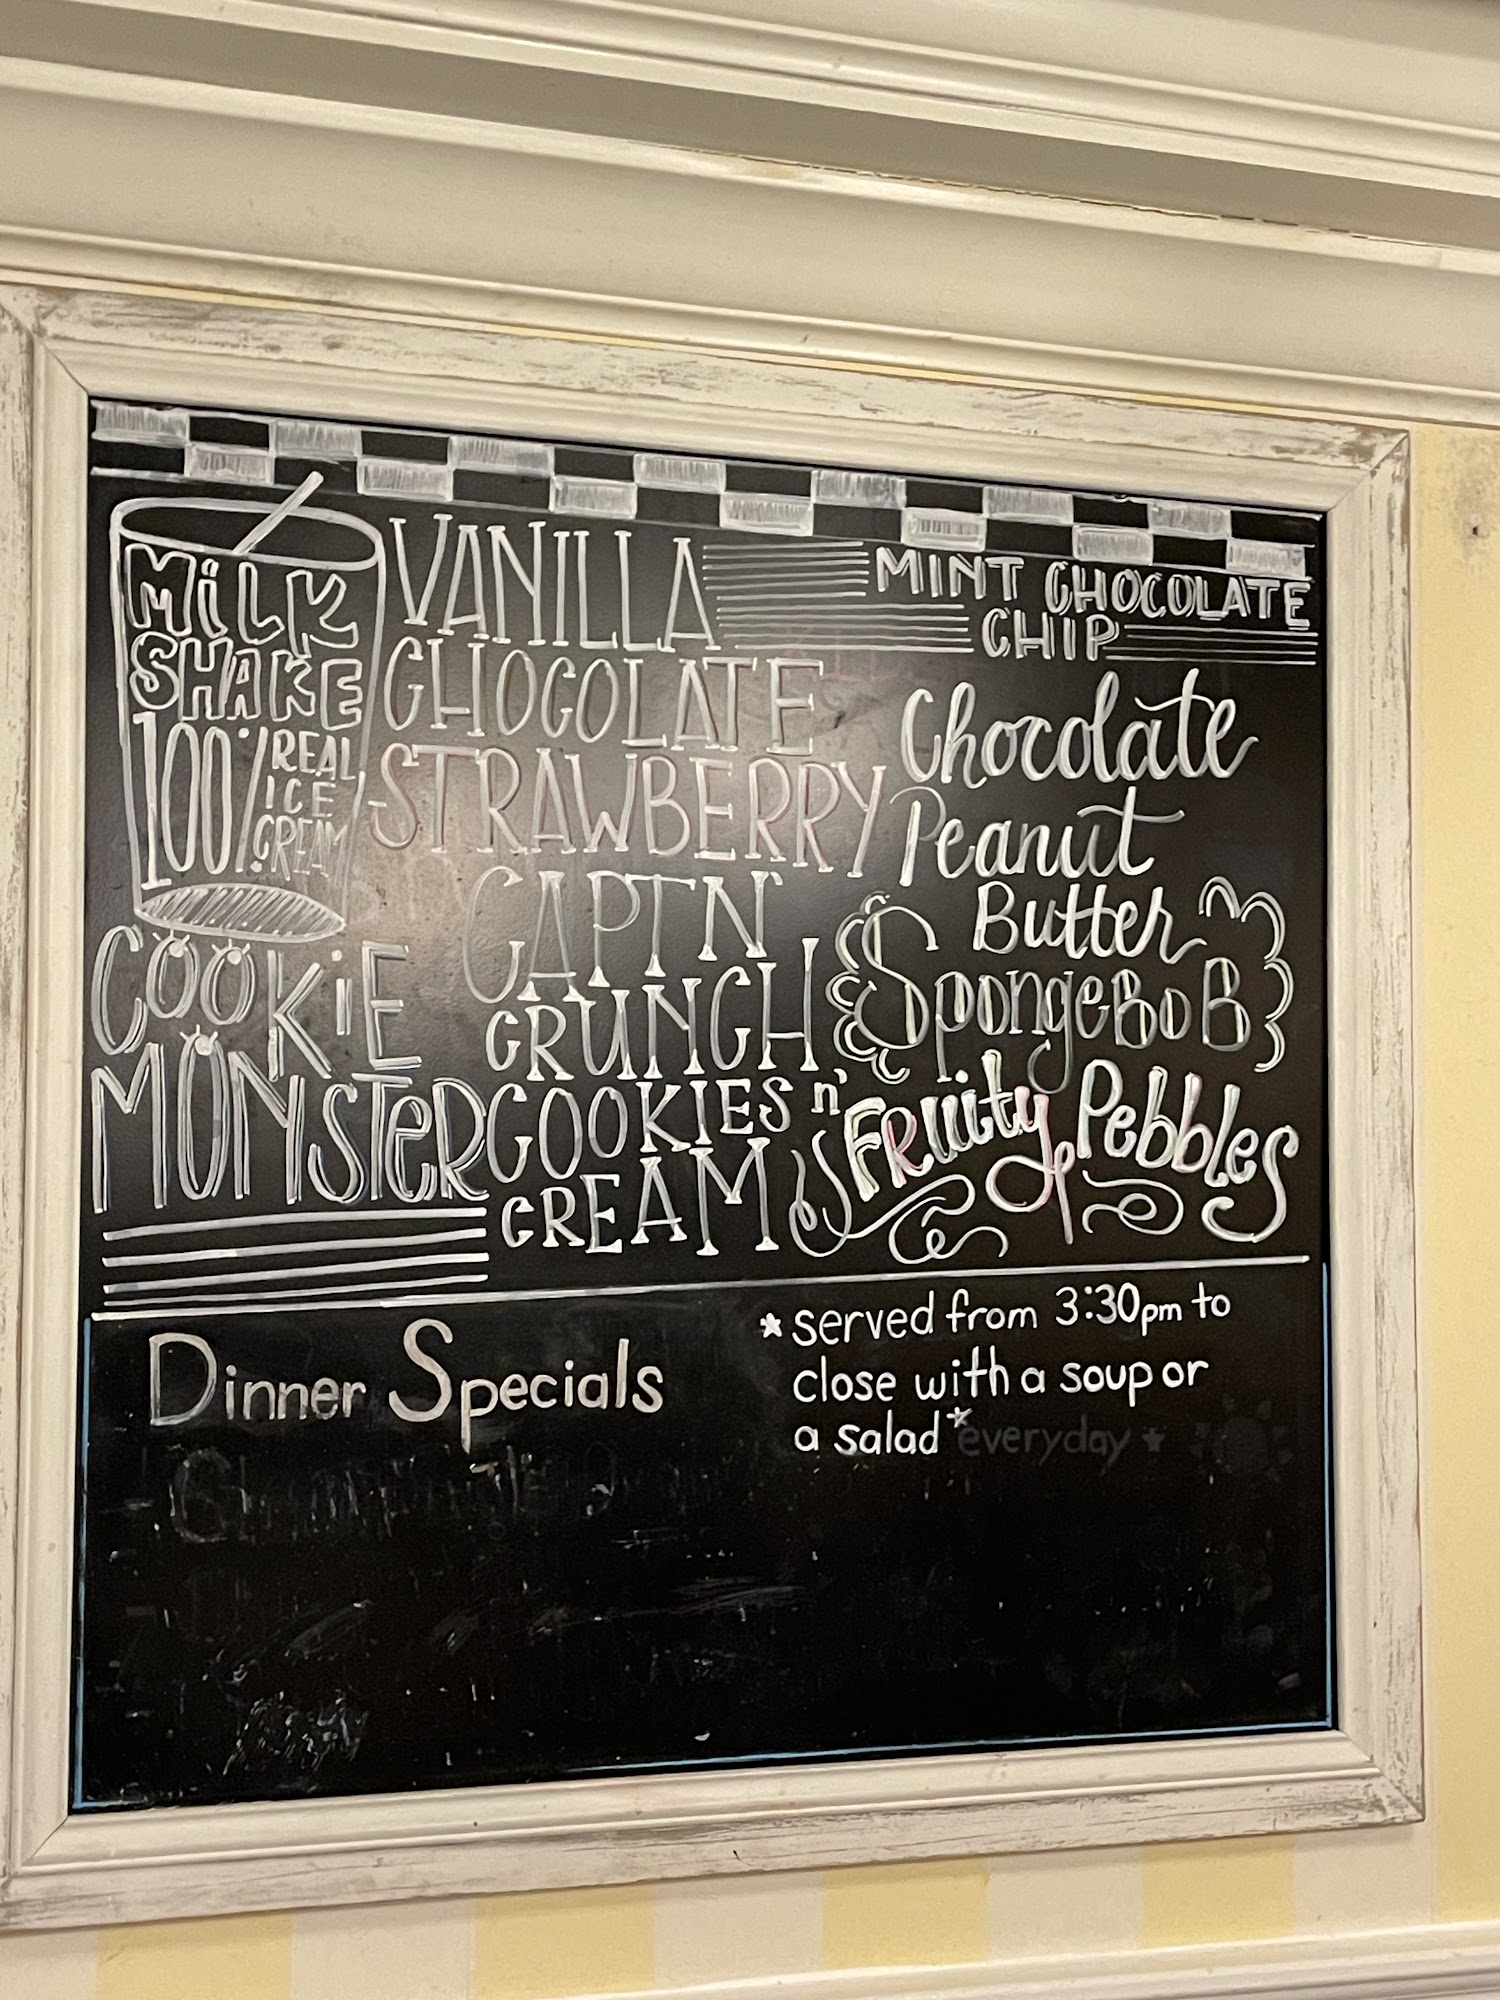 MiLK
SHAKE
100% REAL
ICE
CREAM
VANILLA
CHOCOLATE
STRAWBERRY
COOKiE
MONSTeR
CAPT'N'
CRUNCH
COOKIES n'
CREAM
MINT CHOCOLATE
CHIP
Chocolate
Peanut
Butter
SpongeBoB
FRuity Pebbles
Dinner Specials
*served from 3:30pm to
close with a soup or
a salad* everyday *